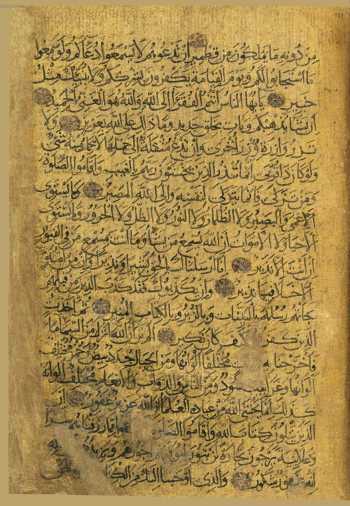 من دونه ما يملكون من قطمير ان تدعوهم لا يسمعوا دعاءكم ولو سمعوا
ما استجابوا لكم ويوم القيامة يكفرون بشرككم ولا ينبئك مثل
خبير يا ايها الناس انتم الفقراء الى الله والله هو الغني الحميد
ان يشأ يذهبكم ويأت بخلق جديد وما ذلك على الله بعزيز ولا
تزر وازرة وزر اخرى وان تدع مثقلة الى حملها لا يحمل منه شيء
ولو كان ذا قربى انما تنذر الذين يخشون ربهم بالغيب واقاموا الصلوة
ومن تزكى فانما يتزكى لنفسه والى الله المصير وما يستوي
الاعمى والبصير ولا الظلمات ولا النور ولا الظل ولا الحرور وما يستوي
الاحياء ولا الاموات ان الله يسمع من يشاء وما انت بمسمع من في القبور
ان انت الا نذير انا ارسلناك بالحق بشيرا ونذيرا وان من امة
الا خلا فيها نذير وان يكذبوك فقد كذب الذين من قبلهم
جاءتهم رسلهم بالبينات وبالزبر وبالكتاب المنير ثم اخذت
الذين كفروا فكيف كان نكير الم تر ان الله انزل من السماء ماء
فاخرجنا به مختلفا الوانها ومن الجبال جدد بيض وحمر مختلف
الوانها وغرابيب سود ومن الناس والدواب والانعام مختلف الوانه
كذلك انما يخشى الله من عباده العلماء ان الله عزيز غفور ان
الذين يتلون كتاب الله واقاموا الصلوة مما رزقناهم سرا
وعلانية يرجون تجارة لن تبور ليوفيهم اجورهم ويزيدهم
انه غفور شكور والذي اوحينا اليك من الكتاب